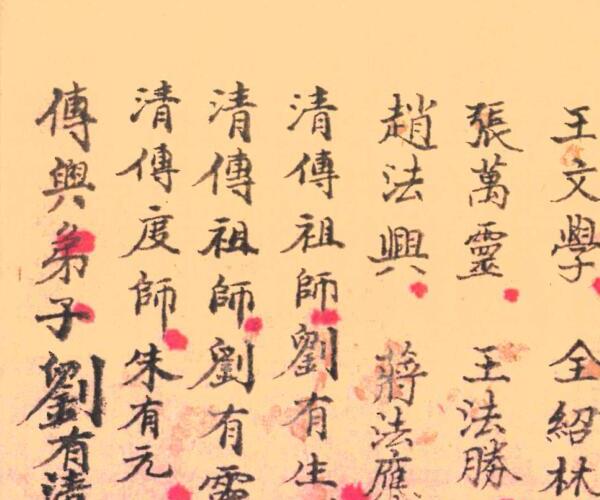 王文學 全紹林
張萬靈 王法勝
趙法興 蔣法應
清傳祖師劉有生
清傳祖師劉有靈
清傳度師朱有元
傳與弟子劉有清